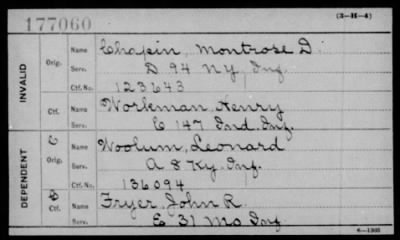 177060 (3-H-4)
INVALID Orig. Name Chapin, Montrose D.
Serv. D. 94 N.Y. Inf.
Ctf. No. 123643
Ctf. Name Workman, Henry
Serv. E 147 Ind. Inf.
DEPENDENT C Orig. Name Woolum, Leonard
Serv. A 8 Ky. Inf.
Ctf. No. 136094
Ctf. Name Fryer, John R.
Serv. E 31 Mo Inf.
6-1303